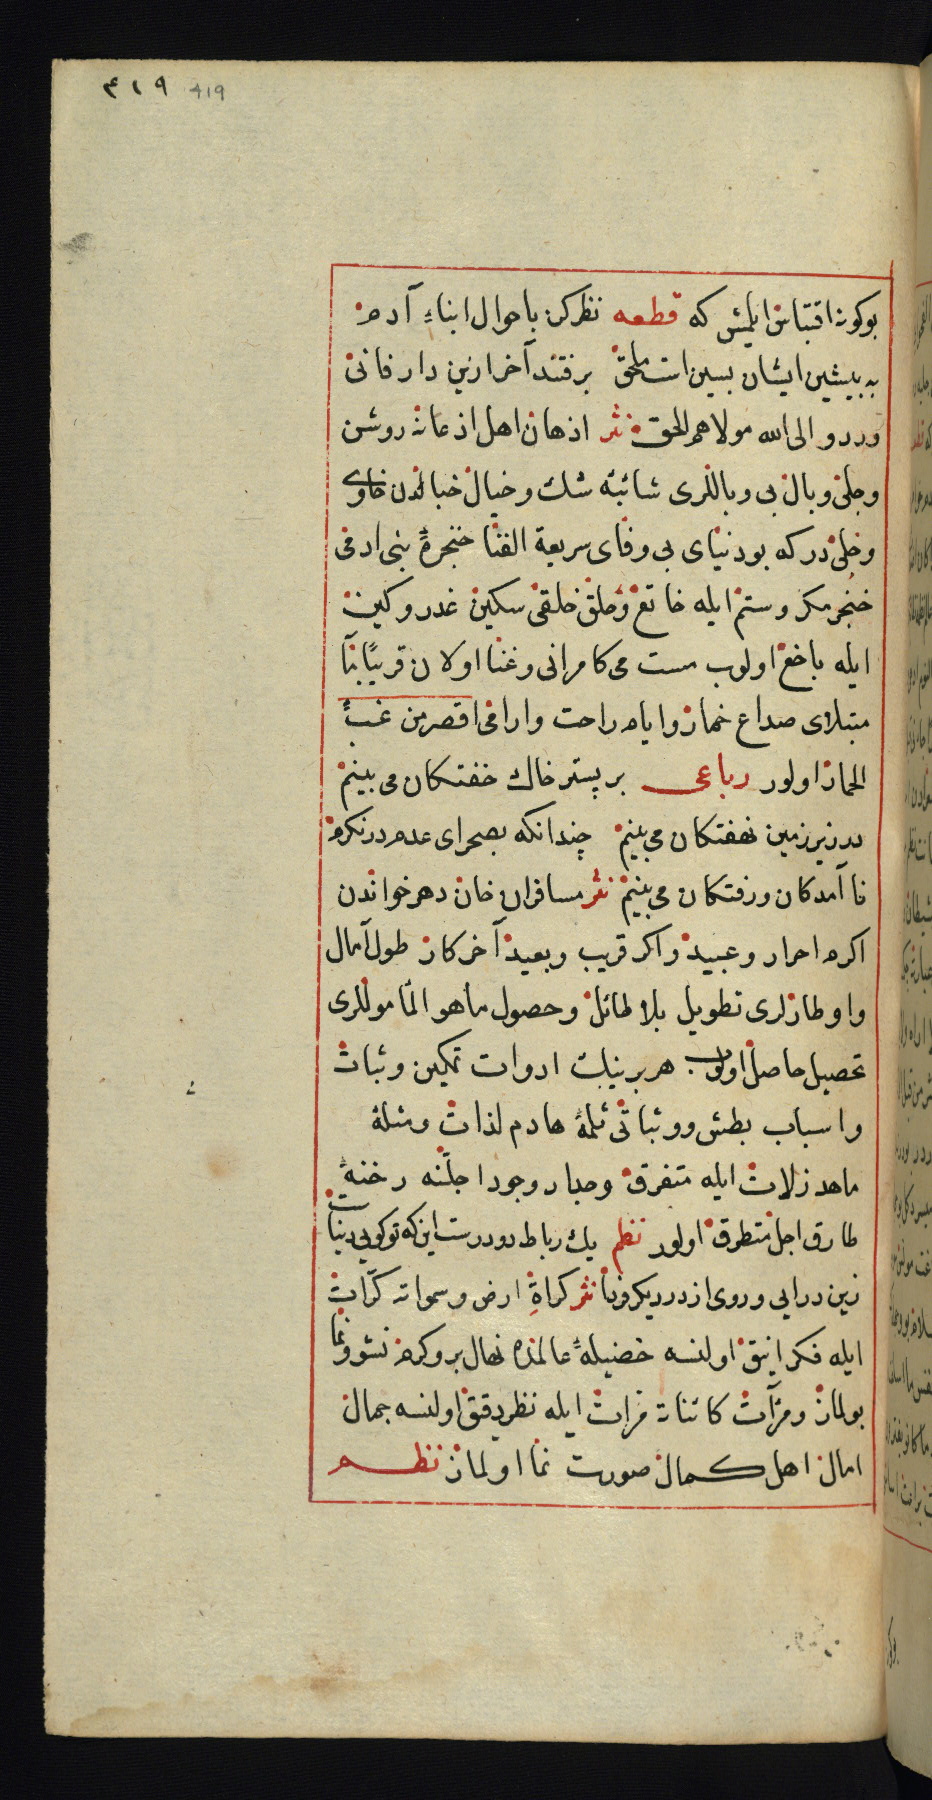 ٤١٩ 419
بوكونه اقتباس ايلمش كه قطعه نظر كن باحوال ابناء آدم
به بيشين ايشان بسين است ملحق برفتند آخر ازين دار فانى
وردو الى الله مولاهم الحق نثر اذهان اهل اذعانه روشن
وجلى وبال بى وباللرى شائبه شك وخيال خبالدن خاوى
وخلى در كه بو دنياى بى وفاى سريعة الفنا حنجرهٔ بنى ادمى
خنجر مكر وستم ايله خانع وحلق خلقى سكين غدر وكين
ايله باخع اولوب مست مى كامرانى وغنا اولان قريبًا بنا
مبتلاى صداع خمار وايام راحت وارامى اقصر من غبّ
الحمار اولور رباعى بر بستر خاك خفتكان مى بينم
در زير زمين نهفتكان مى بينم چندانكه بصحراى عدم در نكرم
نا آمدكان ورفتكان مى بينم نثر مسافران خان دهر خواندن
اكر احرار وعبيد واكر قريب وبعيد آخر كار طول آمال
واوطارلرى تطويل بلا طائل وحصول ما هو المأموللرى
تحصيل حاصل اولوب هر برينك ادوات تمكين وثبات
واسباب بطش ووثباتى ثلمهٔ هادم لذات ومثلهٔ
ماهد زلات ايله متفرق وجدار وجود اجلّنه رخنهٔ
طارق اجل متطرق اولور نظم يك رباط دو درست اين كه تو كويى دنياست
زين درايى وروى از در ديكر فردا نثر كراةِ ارض وسمواته كرّات
ايله فكر انيق اولنسه خضيلهٔ عالمده نهال بر وكرم نشو ونما
بولماز ومرآت كائناته مرات ايله نظر دقيق اولنسه جمال
امال اهل كمال صورت نما اولماز نظم